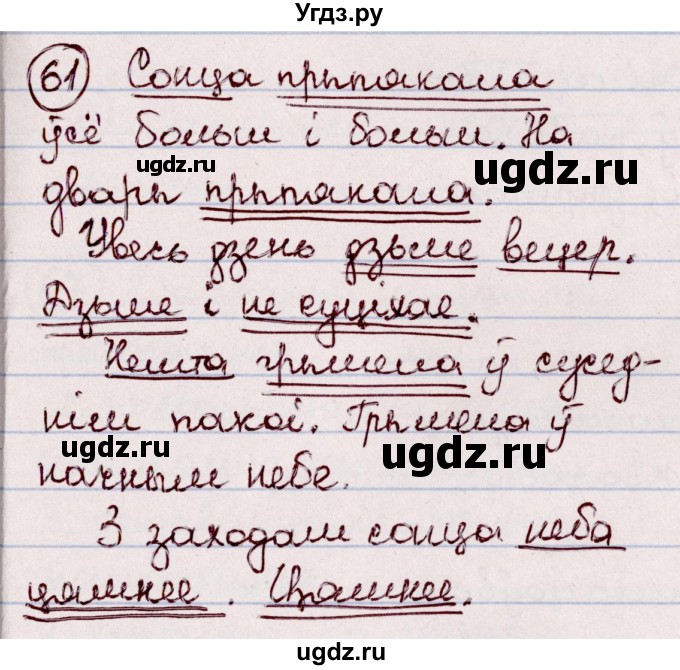 Угдз.ру
61 Сонца прыпякала
ўсё больш і больш. На
дварэ прыпякала.
Увесь дзень дзьме вецер.
Дзьме і не суціхае.
Нешта грымела ў сусед-
нім пакоі. Грымела ў
начным небе.
З заходам сонца неба
цямнее. Цямнее.
ugdz.ru
ugdz.ru
ugdz.ru
ugdz.ru
ugdz.ru
ugdz.ru